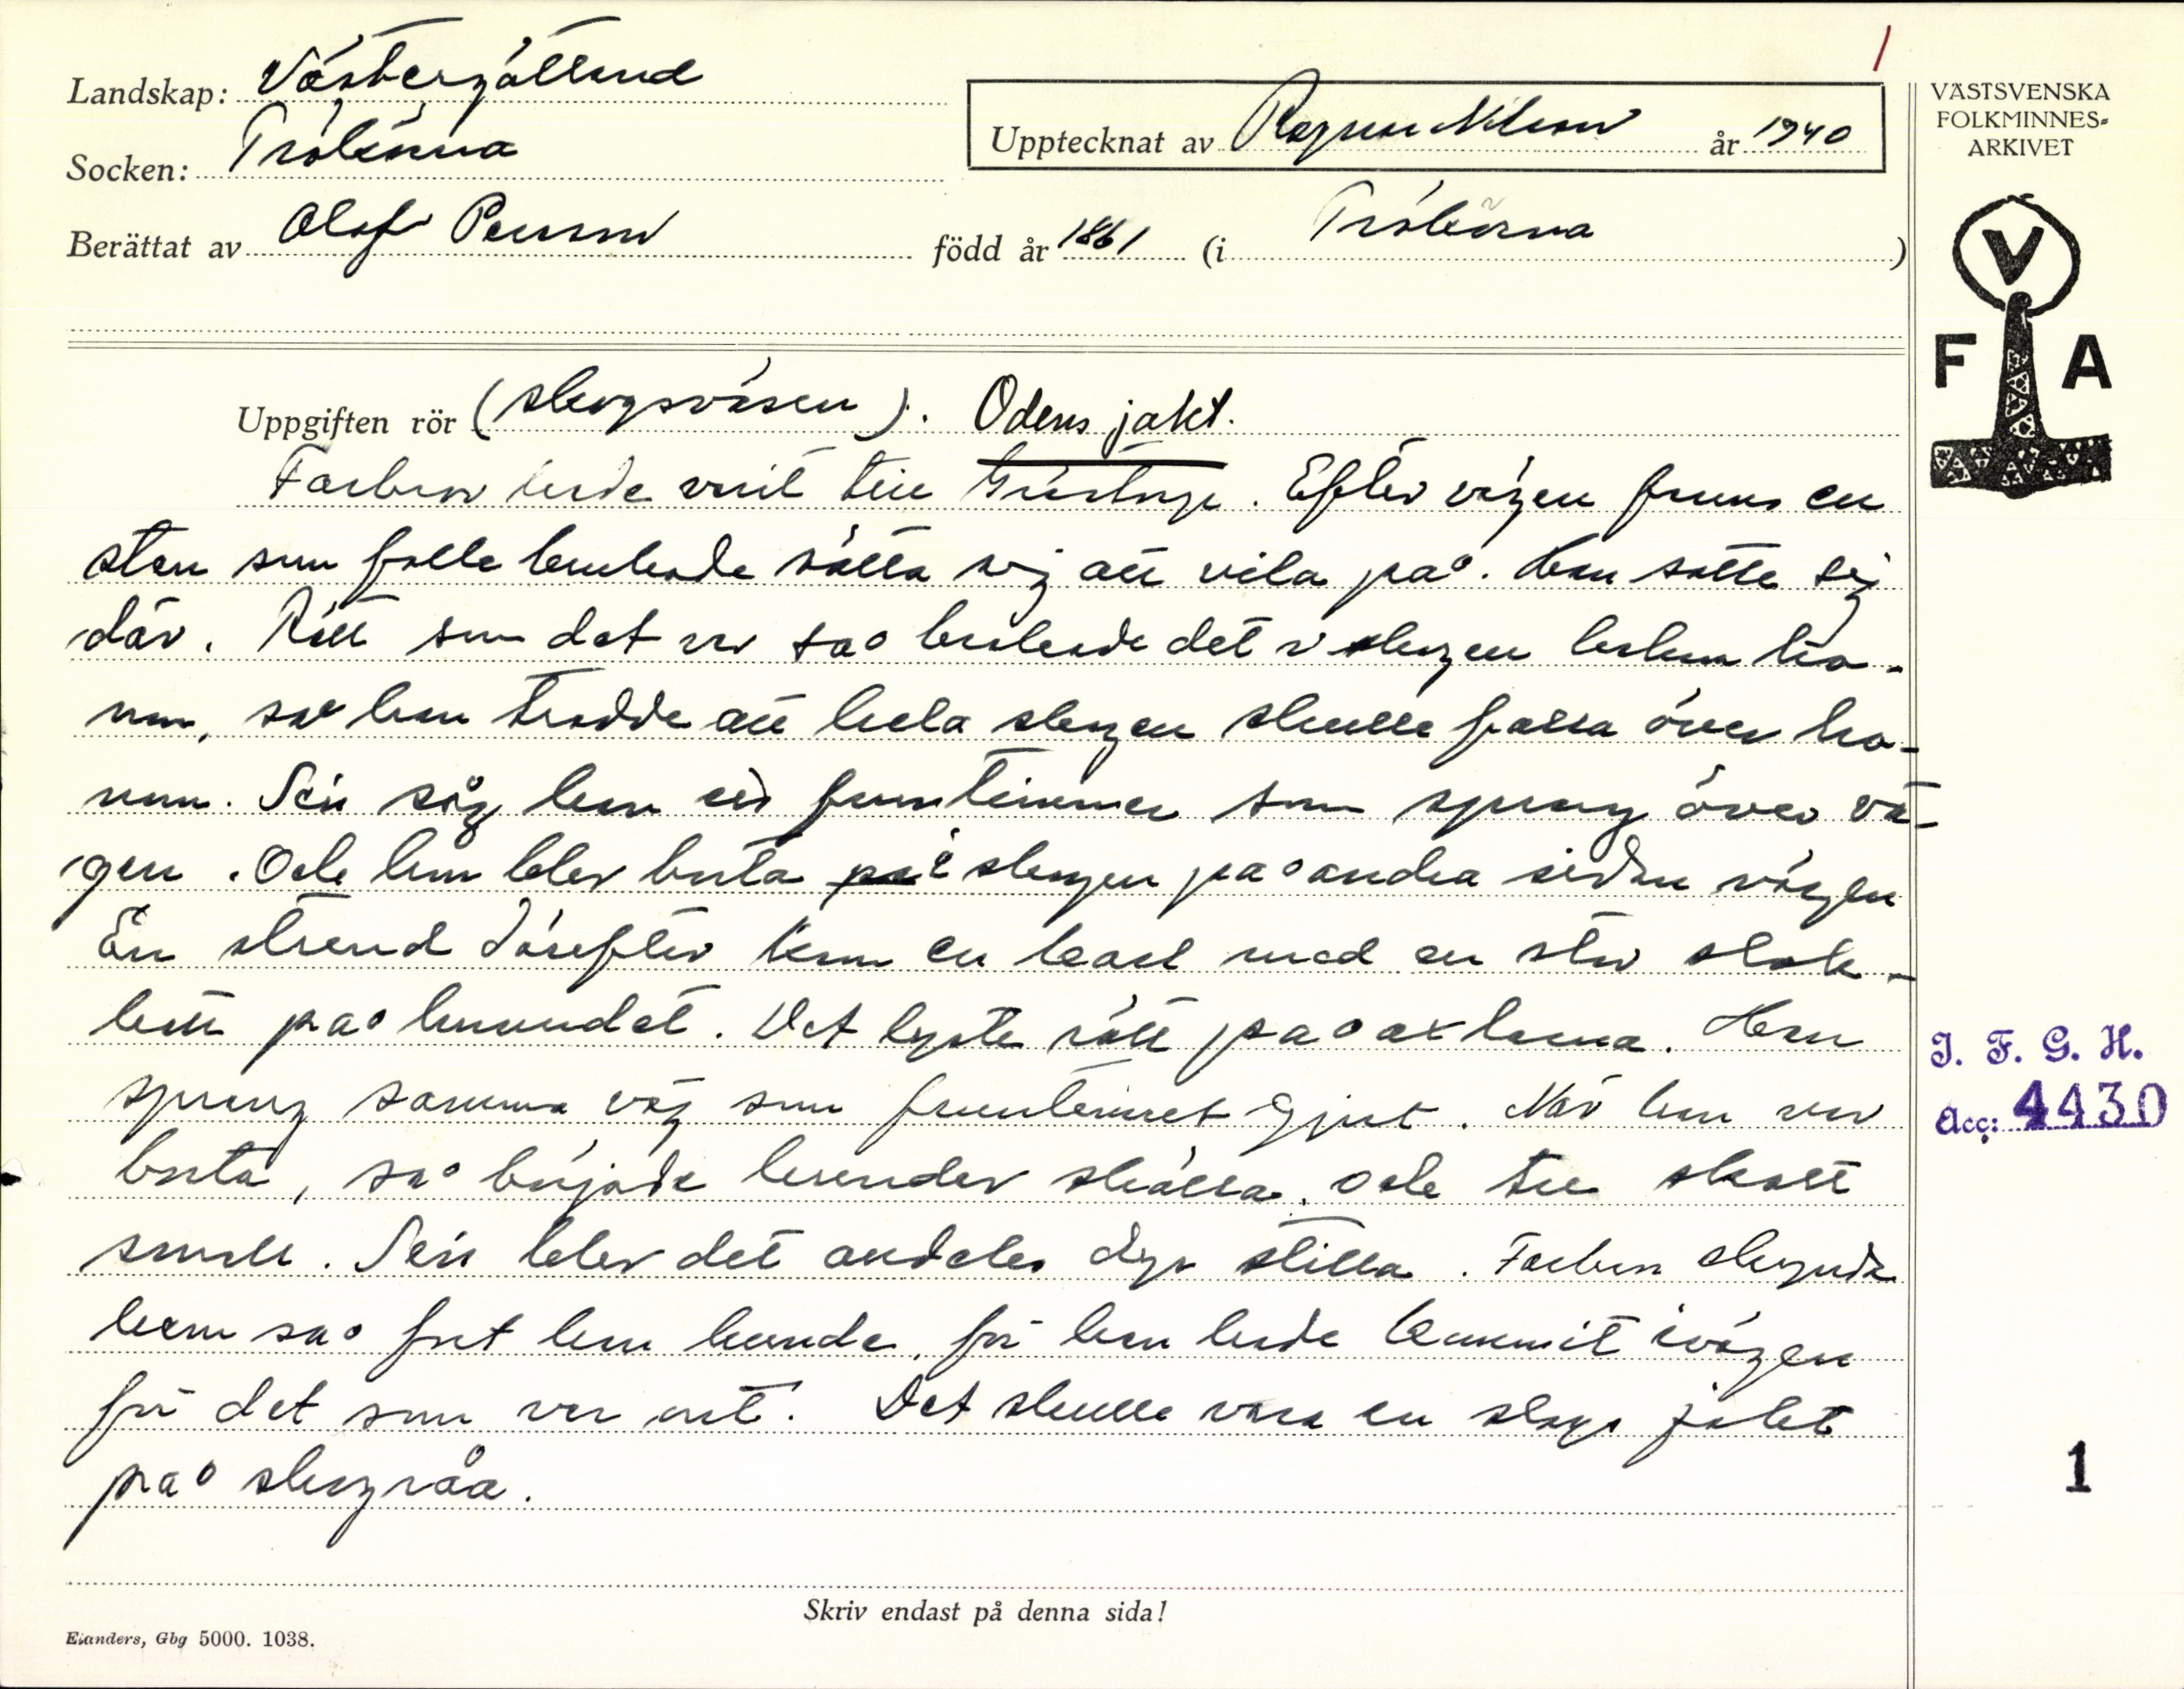 Landskap: Västergötland
Socken: Trökörna
Berättat av Olof Persson
Upptecknat av Ragnar Nilsson år 1940
född år 1861 (i Trökörna )
1
VÄSTSVENSKA
FOLKMINNES-
ARKIVET
V
F A
Uppgiften rör (skogsväsen). Odens jakt.
Farbror hade varit till Grästorp. Efter vägen fanns en
sten som folk brukade sätta sig att vila på. Han satte sig
där. Rätt som det var så brakade det i skogen bakom ho-
nom, så han trodde att hela skogen skulle falla över ho-
nom. Sen såg han ett fruntimmer som sprang över vä-
gen. Och hon blev borta i skogen på andra sidan vägen
En stund därefter kom en karl med en stor slok-
hatt på huvudet. Det lyste rött på axlarna. Han
sprang samma väg som fruntimret gjort. När han var
borta, så började hundar skälla, och två skott
small. Sen blev det alldeles dys stilla. Farbror skynda
hem så fort han kunde, för han hade kommit i vägen
för det som var ont. Det skulle vara en slags jakt
på skogsråa.
I. F. G. H.
Acc: 4430
1
Skriv endast på denna sida!
Elanders, Gbg 5000. 1038.